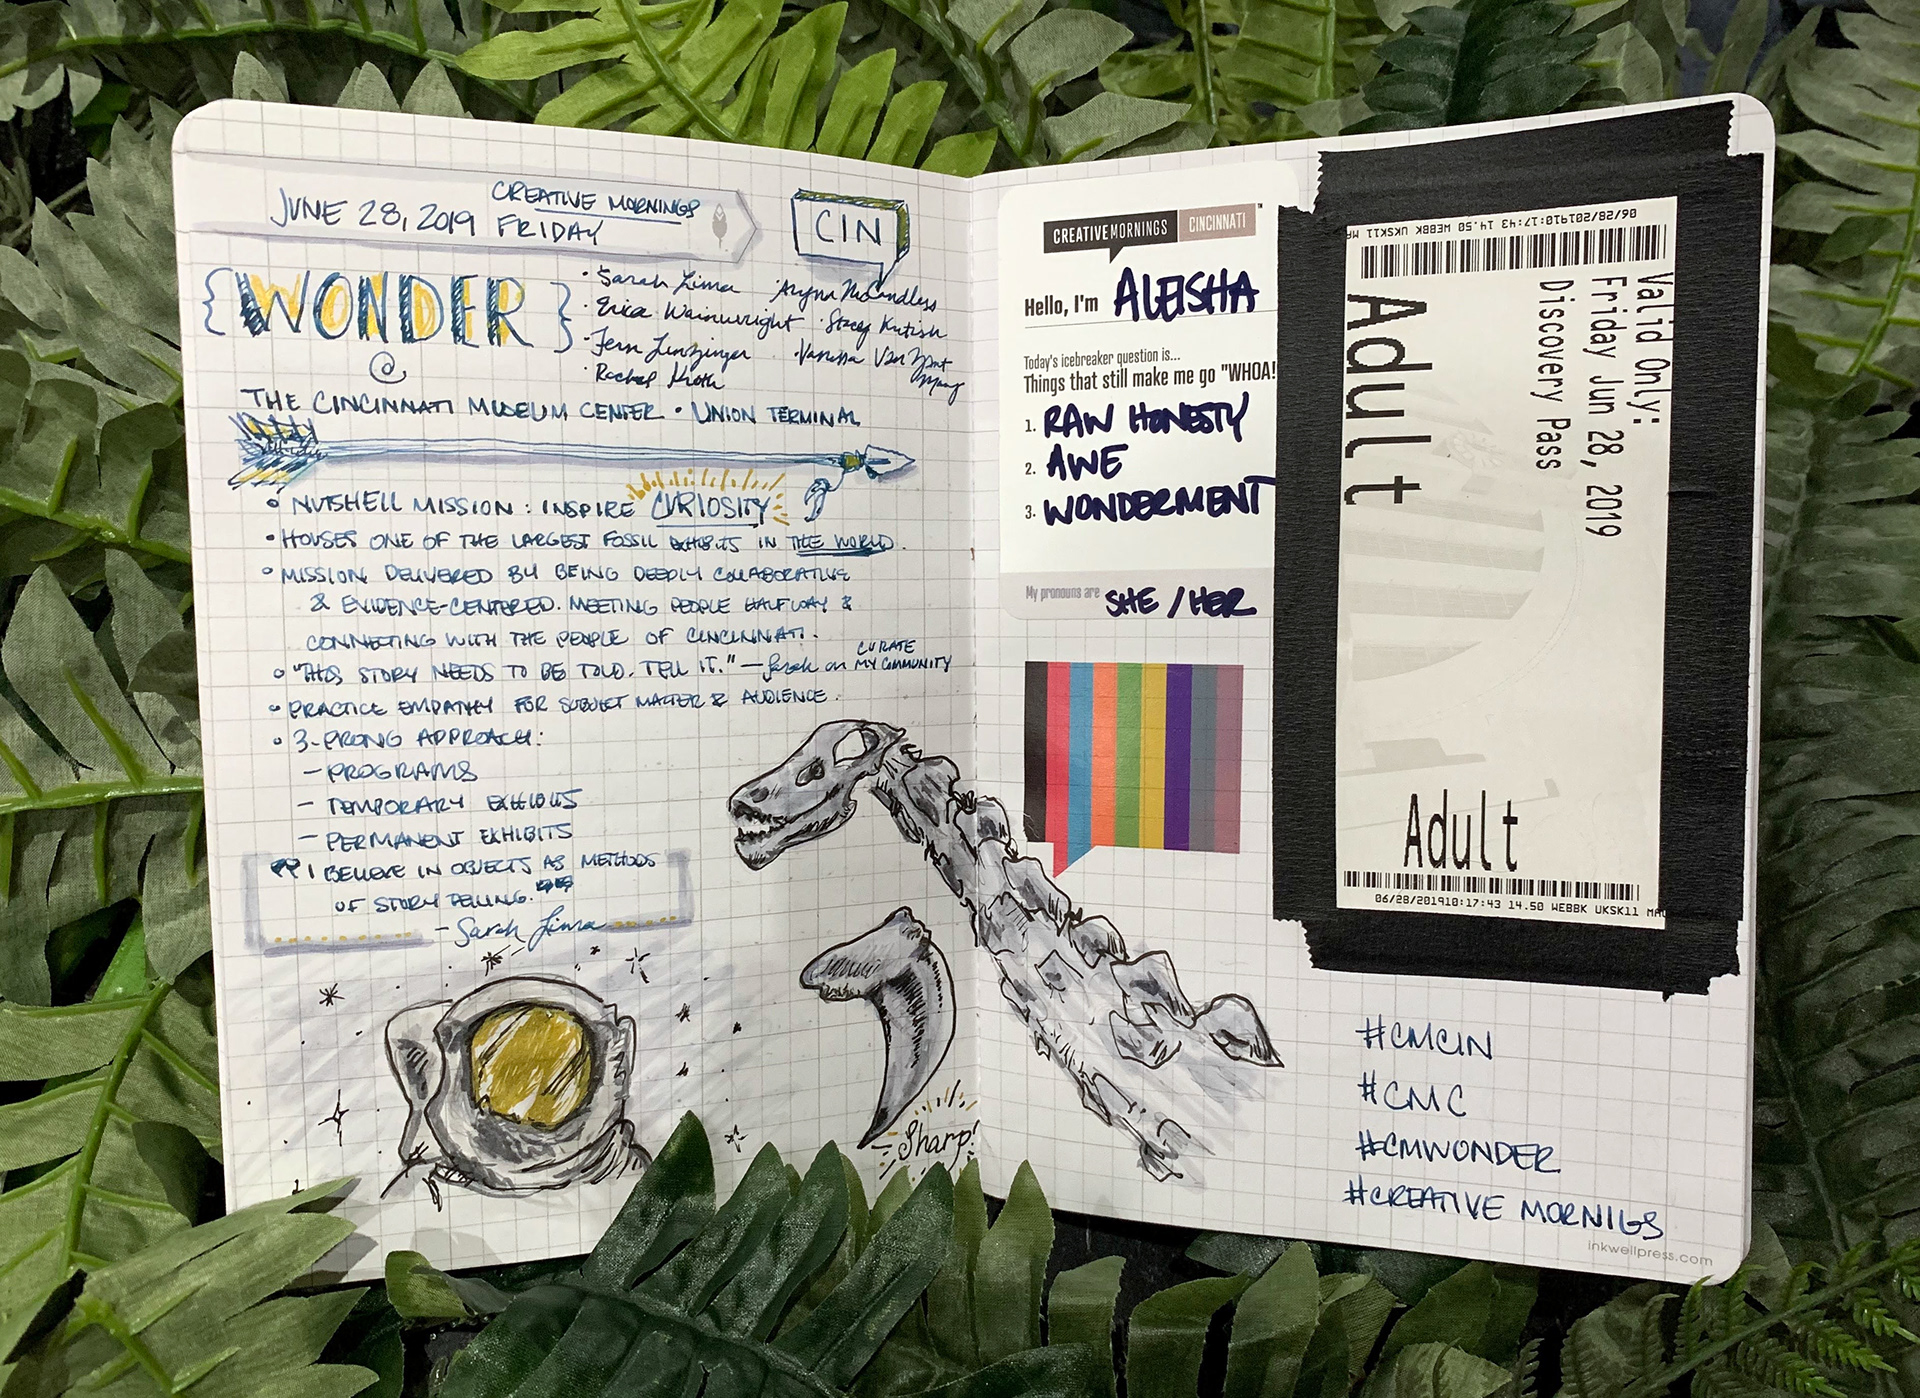 CREATIVE MORNINGS
JUNE 28, 2019 FRIDAY
CIN
{WONDER}
@
• Sarah Lima
• Erica Wainwright
• Fern
• Rachel
McCandless
• Stacey Kutish
• Vanessa Van Zant
THE CINCINNATI MUSEUM CENTER • UNION TERMINAL
• NUTSHELL MISSION: INSPIRE CURIOSITY
• HOUSES ONE OF THE LARGEST FOSSIL EXHIBITS IN THE WORLD.
• MISSION DELIVERED BY BEING DEEPLY COLLABORATIVE
& EVIDENCE-CENTERED. MEETING PEOPLE HALFWAY &
CONNECTING WITH THE PEOPLE OF CINCINNATI.
• "THIS STORY NEEDS TO BE TOLD. TELL IT." — Sarah on CURATE
MY COMMUNITY
• PRACTICE EMPATHY FOR SUBJECT MATTER & AUDIENCE.
• 3-PRONG APPROACH:
– PROGRAMS
– TEMPORARY EXHIBITS
– PERMANENT EXHIBITS
"I BELIEVE IN OBJECTS AS METHODS
OF STORY TELLING."
– Sarah Lima
Sharp!
CREATIVEMORNINGS CINCINNATI ™
Hello, I'm ALEISHA
Today's icebreaker question is...
Things that still make me go "WHOA!
1. RAW HONESTY
2. AWE
3. WONDERMENT
My pronouns are SHE / HER
06/28/201910:17:43 14.50 WEBBK UKSK11 MA
Valid Only:
Friday Jun 28, 2019
Discovery Pass
Adult
Adult
06/28/201910:17:43 14.50 WEBBK UKSK11 MA
#CMCIN
#CMC
#CMWONDER
#CREATIVE MORNIGS
inkwellpress.com